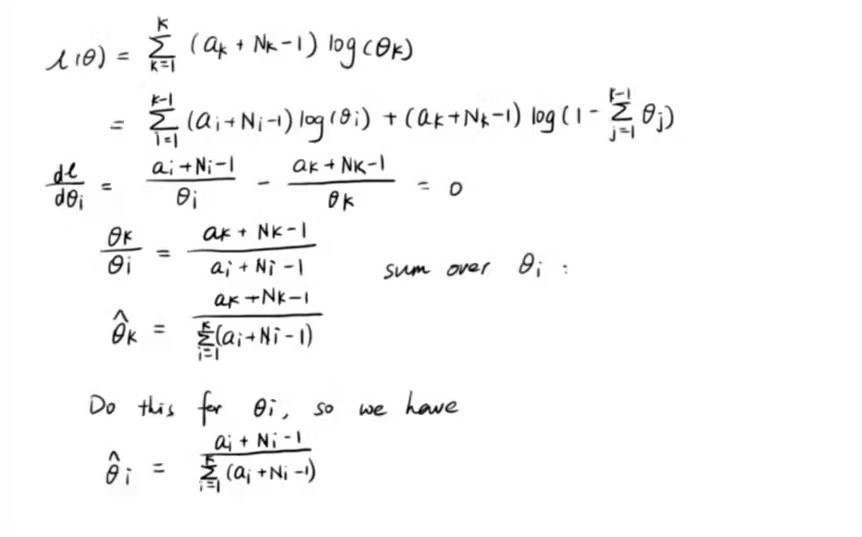 l(θ) = Σ_{k=1}^{K} (a_k + N_k - 1) log(θ_k)
= Σ_{i=1}^{K-1} (a_i + N_i - 1) log(θ_i) + (a_K + N_K - 1) log(1 - Σ_{j=1}^{K-1} θ_j)
dl/dθ_i = (a_i + N_i - 1)/θ_i - (a_K + N_K - 1)/θ_K = 0
θ_K/θ_i = (a_K + N_K - 1)/(a_i + N_i - 1) sum over θ_i :
θ̂_K = (a_K + N_K - 1)/(Σ_{i=1}^{K} (a_i + N_i - 1))
Do this for θ_i, so we have
θ̂_i = (a_i + N_i - 1)/(Σ_{i=1}^{K} (a_i + N_i - 1))